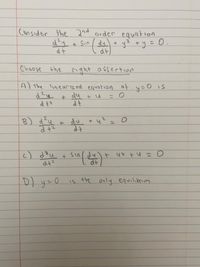 Consider the 2nd order equation
d²y/dt + sin(dy/dt) + y³ + y = 0
Choose the right assertion
A) The linearized equation at y=0 is
d²u/dt² + du/dt + u = 0
B) d²u/dt² + du/dt + u² = 0
C) d²u/dt² + sin(du/dt) + u³ + u = 0
D) y=0 is the only equilibrium